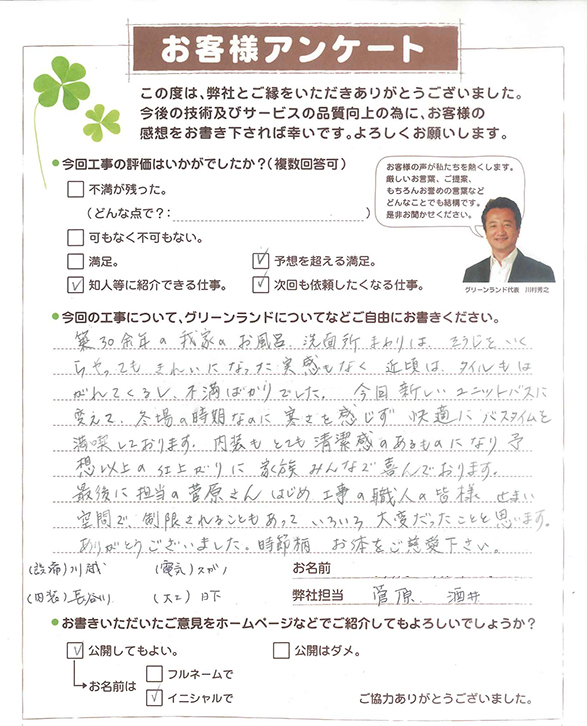 お客様アンケート
この度は、弊社とご縁をいただきありがとうございました。
今後の技術及びサービスの品質向上の為に、お客様の
感想をお書き下されば幸いです。よろしくお願いします。
●今回工事の評価はいかがでしたか？（複数回答可）
□不満が残った。
（どんな点で？：　　　）
□可もなく不可もない。
□満足。
☑予想を超える満足。
☑知人等に紹介できる仕事。
☑次回も依頼したくなる仕事。
お客様の声が私たちを熱くします。
厳しいお言葉、ご提案、
もちろんお誉めの言葉など
どんなことでも結構です。
是非お聞かせください。
グリーンランド代表　川村秀之
●今回の工事について、グリーンランドについてなどご自由にお書きください。
築30余年の我家のお風呂、洗面所まわりは、そうじをいく
らやってもきれいになった実感もなく 近頃は、タイルもは
がれてくるし、不満ばかりでした。 今回 新しいユニットバスに
変えて、冬場の時期なのに寒さを感じず 快適にバスタイムを
満喫しております。内装もとても清潔感のあるものになり 予
想以上の仕上がりに家族みんなで喜んでおります。
最後に担当の菅原さんはじめ 工事の職人の皆様、せまい
空間で、制限されることもあって いろいろ大変だったことと思います。
ありがとうございました。時節柄 お体をご慈愛下さい。
(設備)川感 (電気)スガノ
(内装)長谷川 (大工)日下
お名前
弊社担当 菅原 酒井
●お書きいただいたご意見をホームページなどでご紹介してもよろしいでしょうか？
☑公開してもよい。 □公開はダメ。
お名前は □フルネームで
☑イニシャルで
ご協力ありがとうございました。